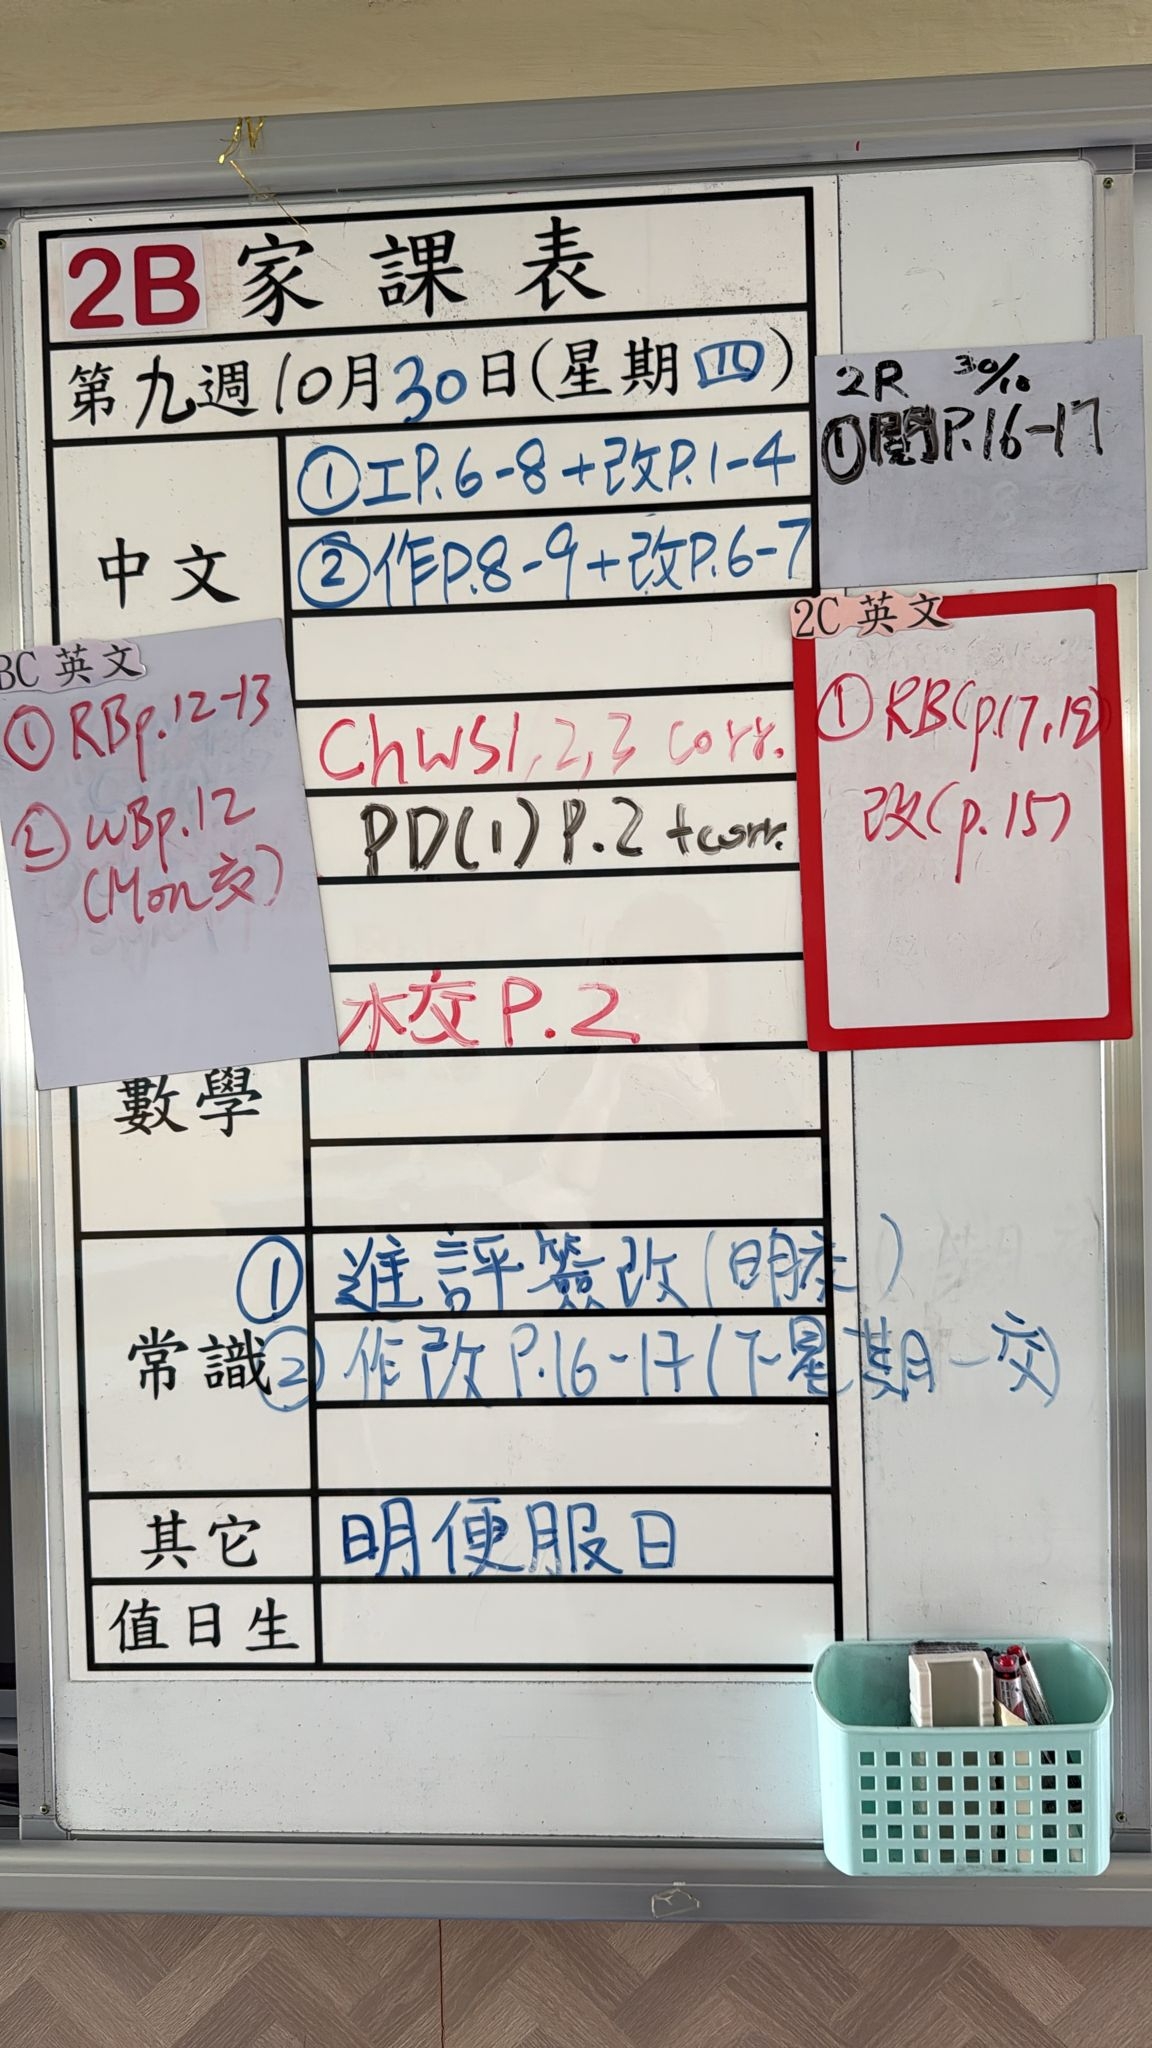 2B 家課表
第九週10月30日(星期四)
中文
①工P.6-8+改P.1-4
②作P.8-9+改P.6-7
2R 30/10
①閱P.16-17
BC 英文
①RBp.12-13
②WBp.12
(Mon交)
ChWS1,2,3 corr.
PD(1) P.2 +corr.
2C 英文
①RB(p.17,19)
改(p.15)
數學
水交 P.2
常識
① 進評簽改(明交)
② 作改 P.16-17(下星期一交)
其它
明便服日
值日生